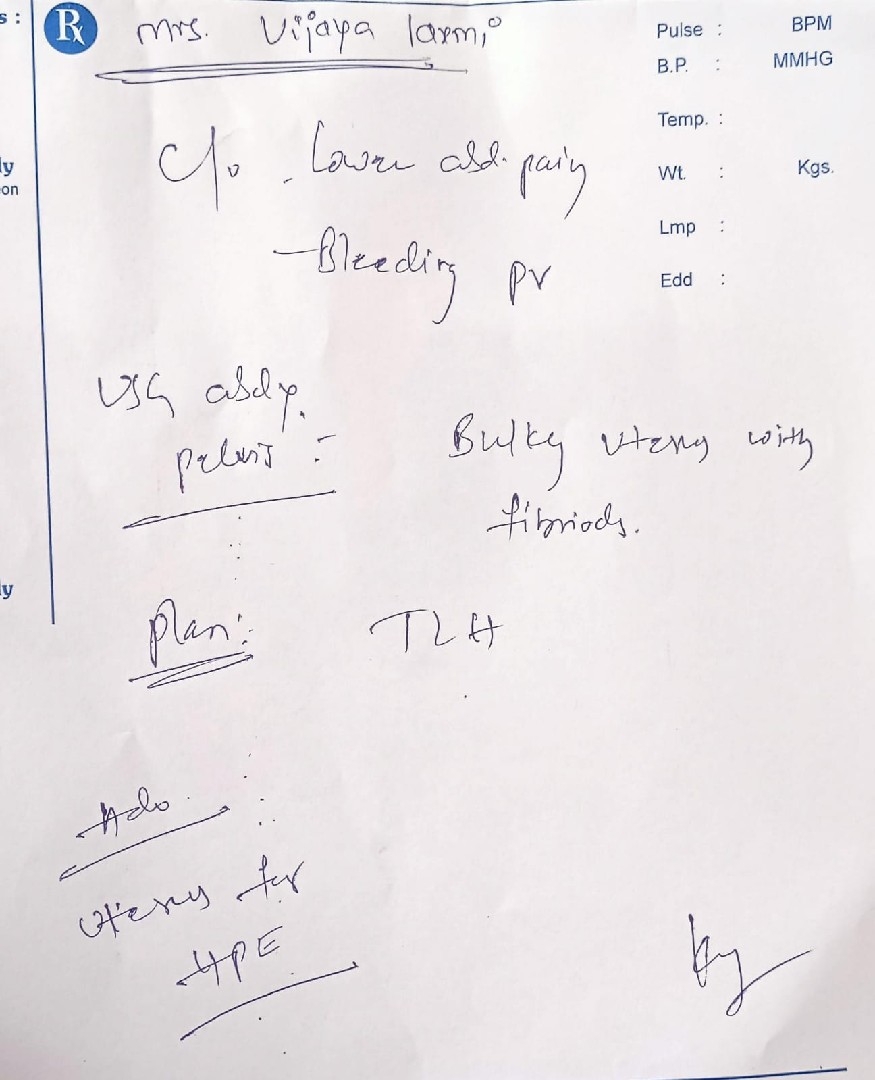 s :
ly
on
ly
Rx Mrs. Vijaya laxmi
Pulse : BPM
B.P. : MMHG
Temp. :
Wt. : Kgs.
Lmp :
Edd :
C/o . Lower abd. pain
- Bleeding PV
USG abd &
pelvis :- Bulky uterus with
fibriods.
Plan :- TLH
Adv
uterus for
HPE